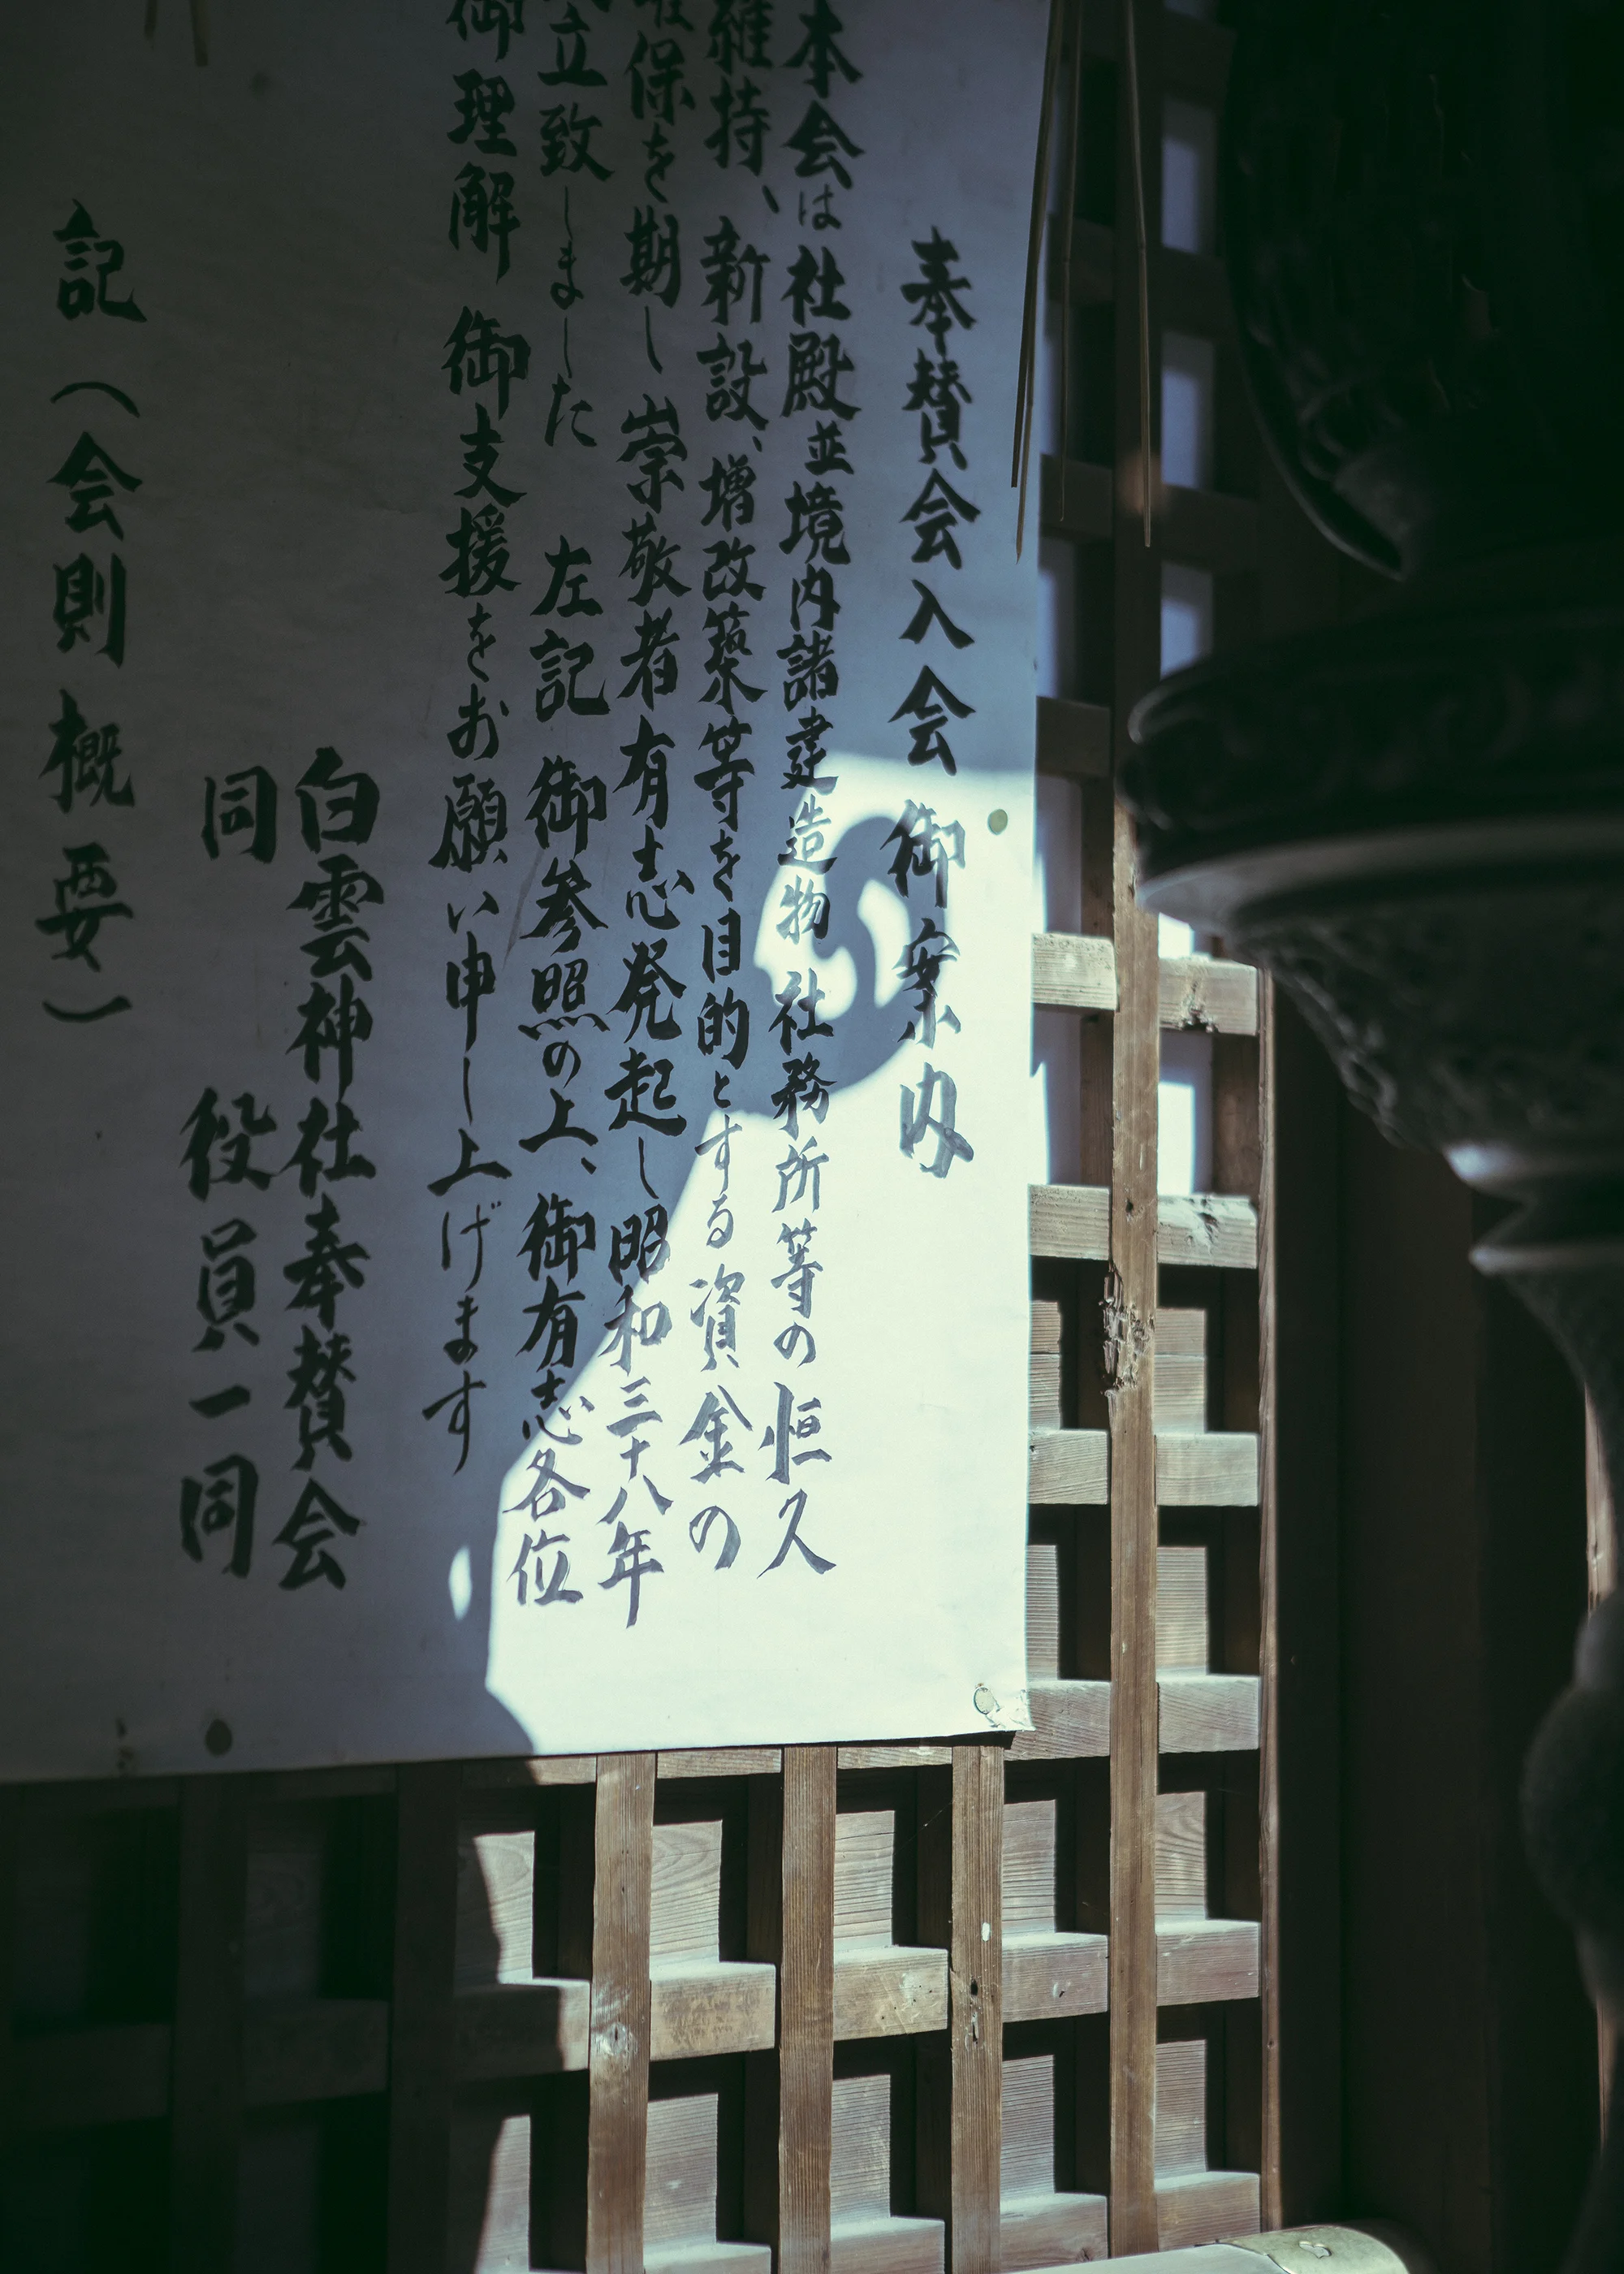 奉賛会入会御案内
本会は社殿並境内諸建造物社務所等の恒久
維持、新設、増改築等を目的とする資金の
保を期し崇敬者有志発起し昭和三十八年
立致しました 左記御参照の上、御有志各位
御理解御支援をお願い申し上げます
白雲神社奉賛会
同 役員一同
記（会則概要）